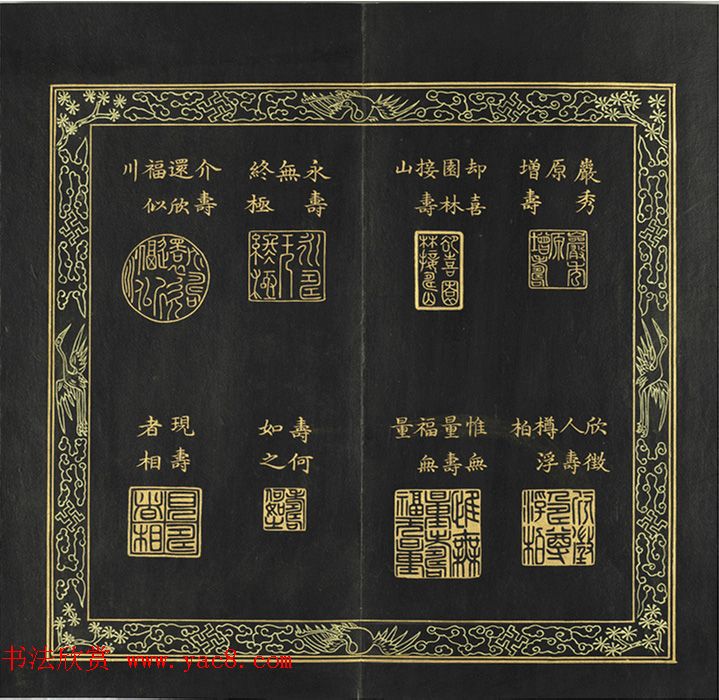 嚴秀原增壽
却喜園林接壽山
永壽無終極
介壽還欣福似川
欣徵人壽樽浮柏
惟無量壽福無量
壽何如之
現壽者相
书法欣赏 www.yac8.com